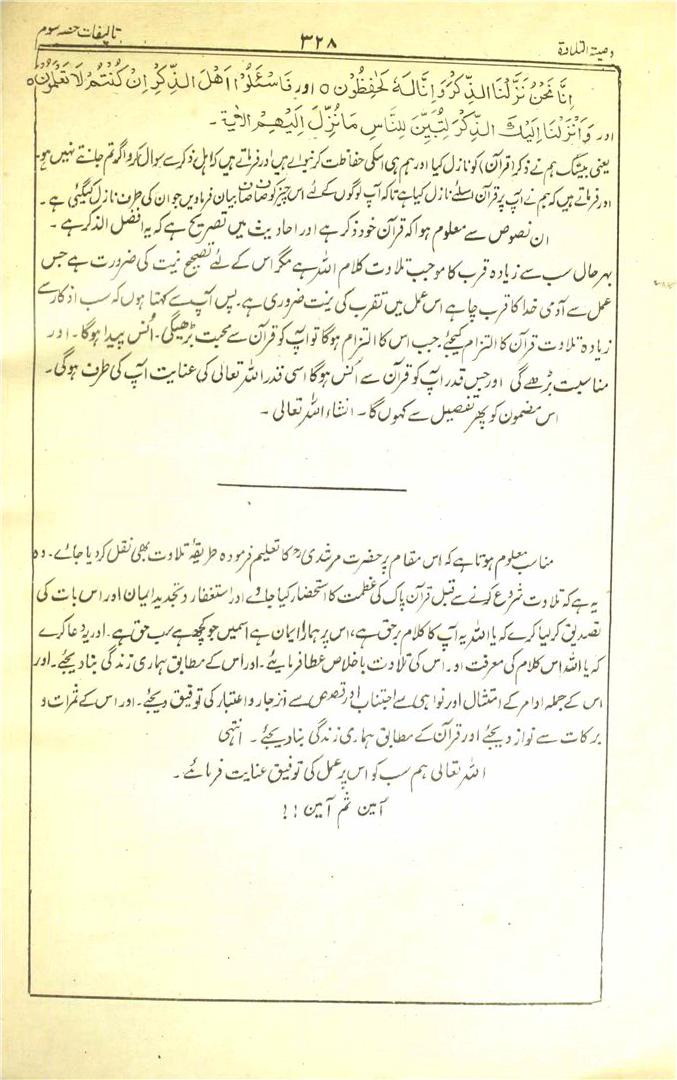 وصیۃ التلاوۃ
۳۲۸
تالیفات حصہ سوم
اِنَّا نَحْنُ نَزَّلْنَا الذِّكْرَ وَاِنَّا لَهٗ لَحٰفِظُوْنَ ○ اور فَاسْئَلُوْا اَهْلَ الذِّكْرِ اِنْ كُنْتُمْ لَا تَعْلَمُوْنَ ○
اور وَاَنْزَلْنَا اِلَيْكَ الذِّكْرَ لِتُبَيِّنَ لِلنَّاسِ مَا نُزِّلَ اِلَيْهِمْ الاٰية ۔
یعنی بیشک ہم نے ذکر (قرآن) کو نازل کیا اور ہم ہی اسکی حفاظت کرنیوالے ہیں اور فرماتے ہیں کہ اہل ذکر سے سوال کرو اگر تم جانتے نہیں ہو۔
اور فرماتے ہیں کہ ہم نے آپ پر قرآن اسلئے نازل کیا ہے تاکہ آپ لوگوں کے لئے اس چیز کو صاف صاف بیان فرماویں جو ان کی طرف نازل کیگئی ہے ۔
ان نصوص سے معلوم ہوا کہ قرآن خود ذکر ہے اور احادیث میں تصریح ہے کہ یہ افضل الذکر ہے ۔
بہرحال سب سے زیادہ قرب کا موجب تلاوت کلام اللہ ہے مگر اس کے لئے تصحیح نیت کی ضرورت ہے جس
عمل سے آدمی خدا کا قرب چاہے اس عمل میں تقرب کی نیت ضروری ہے۔ پس آپ سے کہتا ہوں کہ سب اذکار سے
زیادہ تلاوت قرآن کا التزام کیجئے، جب اس کا التزام ہوگا تو آپ کو قرآن سے محبت بڑھیگی۔ اُنس پیدا ہوگا۔ اور
مناسبت بڑھے گی اور جس قدر آپ کو قرآن سے اُنس ہوگا اسی قدر اللہ تعالی کی عنایت آپ کی طرف ہوگی۔
اس مضمون کو پھر تفصیل سے کہوں گا ۔ انشاء اللہ تعالی ۔
مناسب معلوم ہوتا ہے کہ اس مقام پر حضرت مرشدیؒ کا تعلیم فرمودہ طریقۂ تلاوت بھی نقل کر دیا جائے۔ وہ
یہ ہے کہ تلاوت شروع کرنے سے قبل قرآن پاک کی عظمت کا استحضار کیا جاوے اور استغفار و تجدید ایمان اور اس بات کی
تصدیق کر لیا کرے کہ یا اللہ یہ آپ کا کلام برحق ہے، اس پر ہمارا ایمان ہے اسمیں جو کچھ ہے سب حق ہے۔ اور یہ دعا کرے
کہ یا اللہ اس کلام کی معرفت اور اس کی تلاوت باخلاص عطا فرمائیے ۔ اور اس کے مطابق ہماری زندگی بنا دیجئے۔ اور
اس کے جملہ اوامر کے امتثال اور نواہی سے اجتناب اور قصص سے انزجار و اعتبار کی توفیق دیجئے۔ اور اس کے ثمرات و
برکات سے نواز دیجئے اور قرآن کے مطابق ہماری زندگی بنا دیجئے ۔ انتہی
اللہ تعالی ہم سب کو اس پر عمل کی توفیق عنایت فرمائے ۔
آمین ثم آمین !!